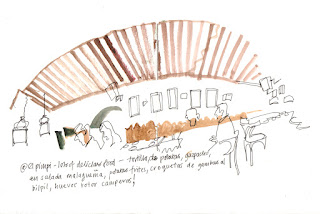 @El pimpi - lots of delicious food - tortilla de patatas, gazpacho,
ensalada malagueña, patatas fritas, croquetas de gambas al
pilpil, huevos rotos camperos!